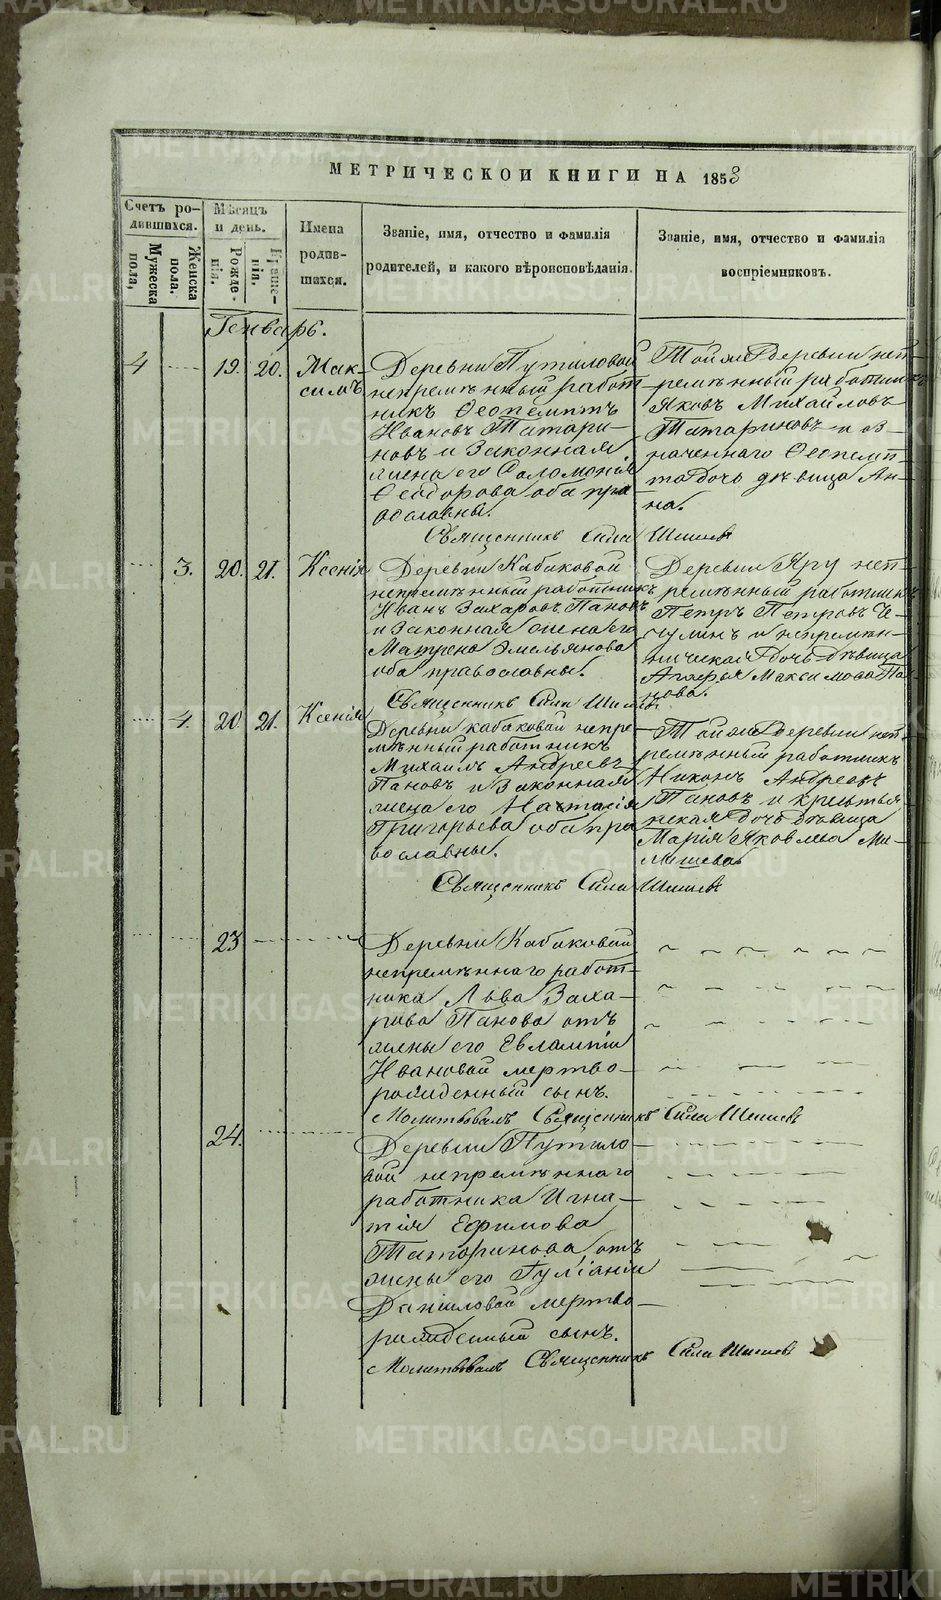 МЕТРИЧЕСКОЙ КНИГИ НА 1853
Счетъ ро-
дившихся.
Мужеска
пола,
Женска
пола.
Мѣсяцъ
и день.
Рожде-
нія.
Креще-
нія.
Имена
родив-
шихся.
Званіе, имя, отчество и фамилія
родителей, и какого вѣроисповѣданія.
Званіе, имя, отчество и фамилія
воспріемниковъ.
Генварь.
4
19. 20.
Мак-
симъ
Деревни Путиловой
непремѣнный работ-
никъ Феопемптъ
Ивановъ Татари-
новъ и законная
жена его Соломонія
Феодорова оба пра-
вославны.
Той же деревни неп-
ремѣнный работникъ
Яковъ Михайловъ
Татариновъ и оз-
наченнаго Феопемп-
та дочь дѣвица Ан-
на.
Священникъ Сила Шишев
3. 20. 21.
Ксенія
Деревни Кабаковой
непремѣнный работникъ
Иванъ Захаровъ Пановъ
и законная жена его
Матрена Эмельянова
оба православны.
Деревни Яру неп-
ремѣнный работникъ
Петръ Петровъ Че-
чулинъ и непремѣн-
ническая дочь дѣвица
Агафья Максимова Па-
нова.
Священникъ Сила Шишев
4. 20 21.
Ксенія
Деревни Кабаковой непре-
мѣнный работникъ
Михаилъ Андреевъ
Пановъ и законная
жена его Настасія
Григорьева оба пра-
вославны.
Той же деревни неп-
ремѣнный работникъ
Никонъ Андреевъ
Пановъ и крестья-
нская дочь дѣвица
Марія Яковлева Ми-
Священникъ Сила Шишев
23
Деревни Кабаковой
непремѣннаго работ-
ника Льва Заха-
рова Панова отъ
жены его Евлампіи
Ивановой мертво-
рожденный сынъ.
Молитвовалъ Священникъ Сила Шишев
24.
Деревни Путило-
вой непремѣннаго
работника Игна-
тія Ефимова
Татаринова отъ
жены его Іуліаніи
Даниловой мертво-
рожденный сынъ.
Молитвовалъ Священникъ Сила Шишев
METRIKI.GASO-URAL.RU